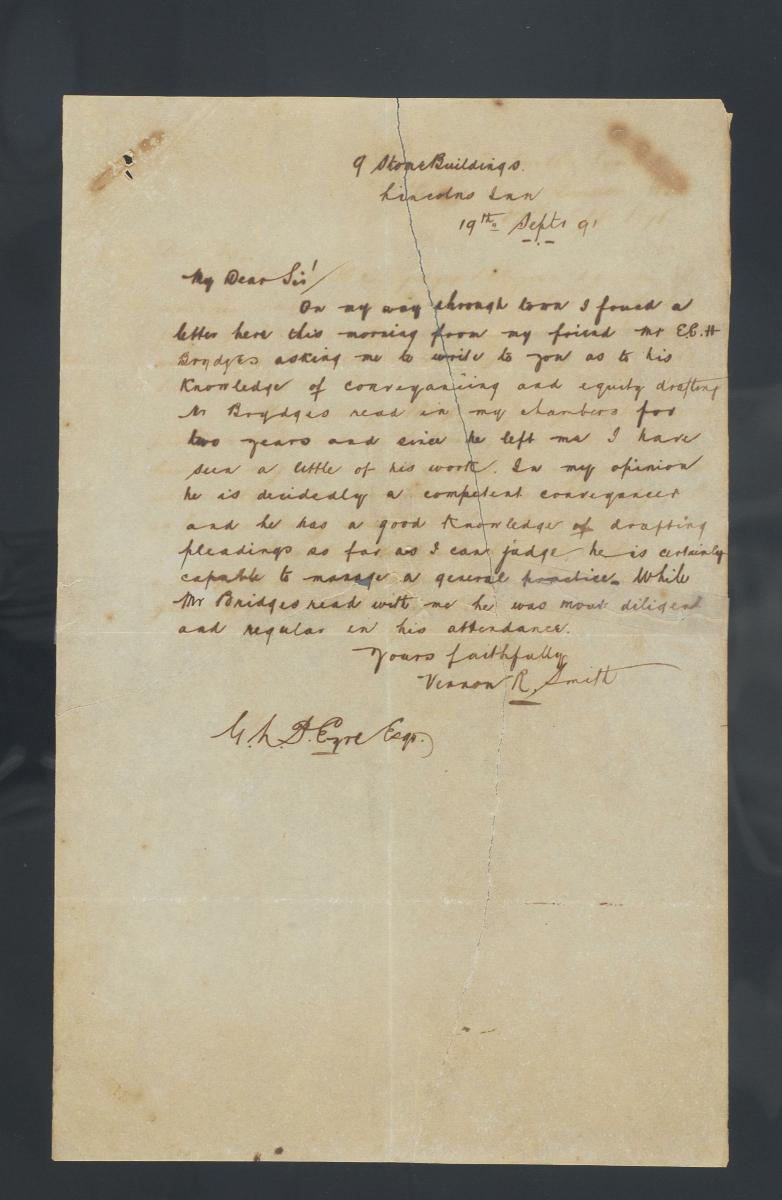 9 Stone Buildings.
Lincolns Inn
19th Sept 91
My Dear Sir!
On my way through town I found a
letter here this morning from my friend Mr E.C.H
Brydges asking me to write to you as to his
Knowledge of conveyancing and equity drafting
Mr Brydges read in my chambers for
two years and since he left me I have
seen a little of his work. In my opinion
he is decidedly a competent conveyancer
and he has a good Knowledge of drafting
pleadings so far as I can judge he is certainly
capable to manage a general practice. While
Mr Bridges read with me he was most diligent
and regular in his attendance.
Yours faithfully
Vernon R. Smith
Eyre Esqr.